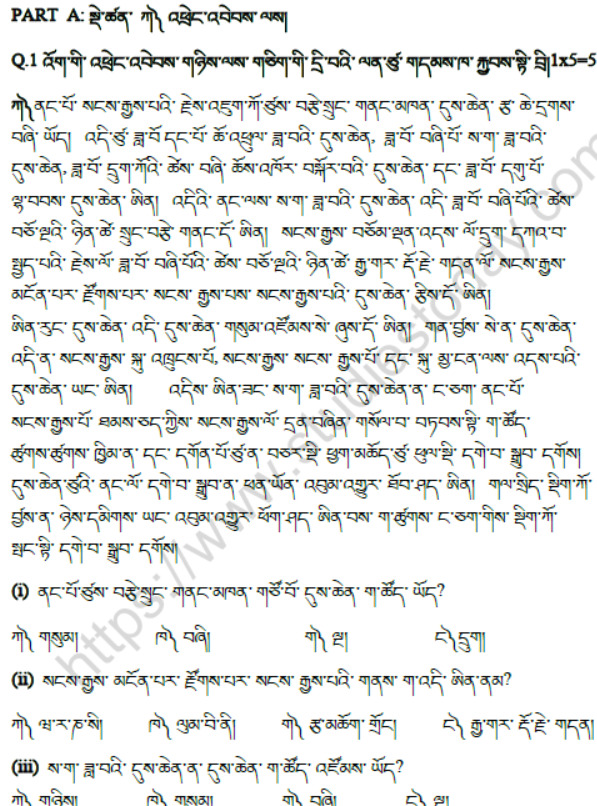 PART A: སྡེ་ཚན་ ཀ༽ འཕྲེང་འབེབས་ལས།
Q.1 འོག་གི་ འཕྲེང་འབེབས་གཉིས་ལས་ གཅིག་གི་ དྲི་བའི་ ལན་ཙུ་ གདམས་ཁ་ རྐྱབས་སྟི་ བྲི།1x5=5
ཀ༽ ནང་པོ་ སངས་རྒྱས་པའི་ རྗེས་འཇུག་ཀོ་ཙུས་ བརྩེ་སྲུང་ གནང་མཁན་ དུས་ཆེན་ རྩ་ ཆེ་དྲགས་
བཞི་ ཡོད། འདི་ཙུ་ ཟླ་བོ་དང་པོ་ ཆོ་འཕྲུལ་ ཟླ་བའི་ དུས་ཆེན, ཟླ་བོ་ བཞི་པོ་ ས་ག་ ཟླ་བའི་
དུས་ཆེན, ཟླ་བོ་ དྲུག་ཀོའི་ ཚེས་ བཞི་ ཆོས་འཁོར་ བསྐོར་བའི་ དུས་ཆེན་ དང་ ཟླ་བོ་ དགུ་པོ་
ལྷ་བབས་ དུས་ཆེན་ ཨིན། འདིའི་ ནང་ལས་ ས་ག་ ཟླ་བའི་ དུས་ཆེན་ འདི་ ཟླ་བོ་ བཞི་པོའི་ ཚེས་
བཅོ་ལྔའི་ ཉིན་ཚེ་ སྲུང་བརྩེ་ གནང་དོ་ ཨིན། སངས་རྒྱས་ བཅོམ་ལྡན་འདས་ ལོ་དྲུག་ དཀའ་བ་
སྤྱད་པའི་ རྗེས་ལོ་ ཟླ་བོ་ བཞི་པོའི་ ཚེས་ བཅོ་ལྔའི་ ཉིན་ཚེ་ རྒྱ་གར་ རྡོ་རྗེ་ གདན་ལོ་ སངས་རྒྱས་
མངོན་པར་ རྫོགས་པར་ སངས་ རྒྱས་པས་ སངས་རྒྱས་པའི་ དུས་ཆེན་ རྩིས་དོ་ ཨིན།
ཨིན་རུང་ དུས་ཆེན་ འདི་ དུས་ཆེན་ གསུམ་འཛོམས་སེ་ ཞུས་དོ་ ཨིན། གན་བྱོས་ སེ་ན་ དུས་ཆེན་
འདི་ན་ སངས་རྒྱས་ སྐུ་ འཁྲུངས་པོ, སངས་རྒྱས་ སངས་ རྒྱས་པོ་ དང་ སྐུ་ མྱ་ངན་ལས་ འདས་པའི་
དུས་ཆེན་ ཡང་ ཨིན། འདིས་ ཨིན་ཟང་ ས་ག་ ཟླ་བའི་ དུས་ཆེན་ན་ ང་ཅག་ ནང་པོ་
སངས་རྒྱས་པོ་ ཐམས་ཅད་ཀྱིས་ སངས་རྒྱས་ལོ་ དྲན་བཞིན་ གསོལ་བ་ བཏབས་སྟི་ ག་ཚོད་
ཚུགས་ཚུགས་ ཁྱིམ་ན་ དང་ དགོན་པོ་ཙུ་ན་ བཅར་སྡི་ ཕྱག་མཆོད་ཙུ་ ཕུལ་སྡི་ དགེ་བ་ སྒྲུབ་ དགོས།
དུས་ཆེན་ཙུའི་ ནང་ལོ་ དགེ་བ་ སྒྲུབ་ན་ ཕན་ཡོན་ འབུམ་འགྱུར་ ཐོབ་ཤད་ ཨིན། གལ་སྲིད་ སྡིག་ཀོ་
བྱོས་ན་ ཉེས་དམིགས་ ཡང་ འབུམ་འགྱུར་ ཕོག་ཤད་ ཨིན་བས་ ག་ཚུགས་ ང་ཅག་གིས་ སྡིག་ཀོ་
སྤང་སྟི་ དགེ་བ་ སྒྲུབ་ དགོས།
(i) ནང་པོ་ཙུས་ བརྩེ་སྲུང་ གནང་མཁན་ གཙོ་བོ་ དུས་ཆེན་ ག་ཚོད་ ཡོད?
ཀ༽ གསུམ། ཁ༽ བཞི། ག༽ ལྔ། ང༽ དྲུག།
(ii) སངས་རྒྱས་ མངོན་པར་ རྫོགས་པར་ སངས་ རྒྱས་པའི་ གནས་ ག་འདི་ ཨིན་ནམ?
ཀ༽ ཝ་ར་ཎ་སི། ཁ༽ ལུམ་བི་ནི། ག༽ རྩ་མཆོག་ གྲོང་། ང༽ རྒྱ་གར་ རྡོ་རྗེ་ གདན།
(iii) ས་ག་ ཟླ་བའི་ དུས་ཆེན་ན་ དུས་ཆེན་ ག་ཚོད་ འཛོམས་ ཡོད?
ཀ༽ གཉིས། ཁ༽ གསུམ། ག༽ བཞི། ང༽ ལྔ།
https://www.studiestoday.com